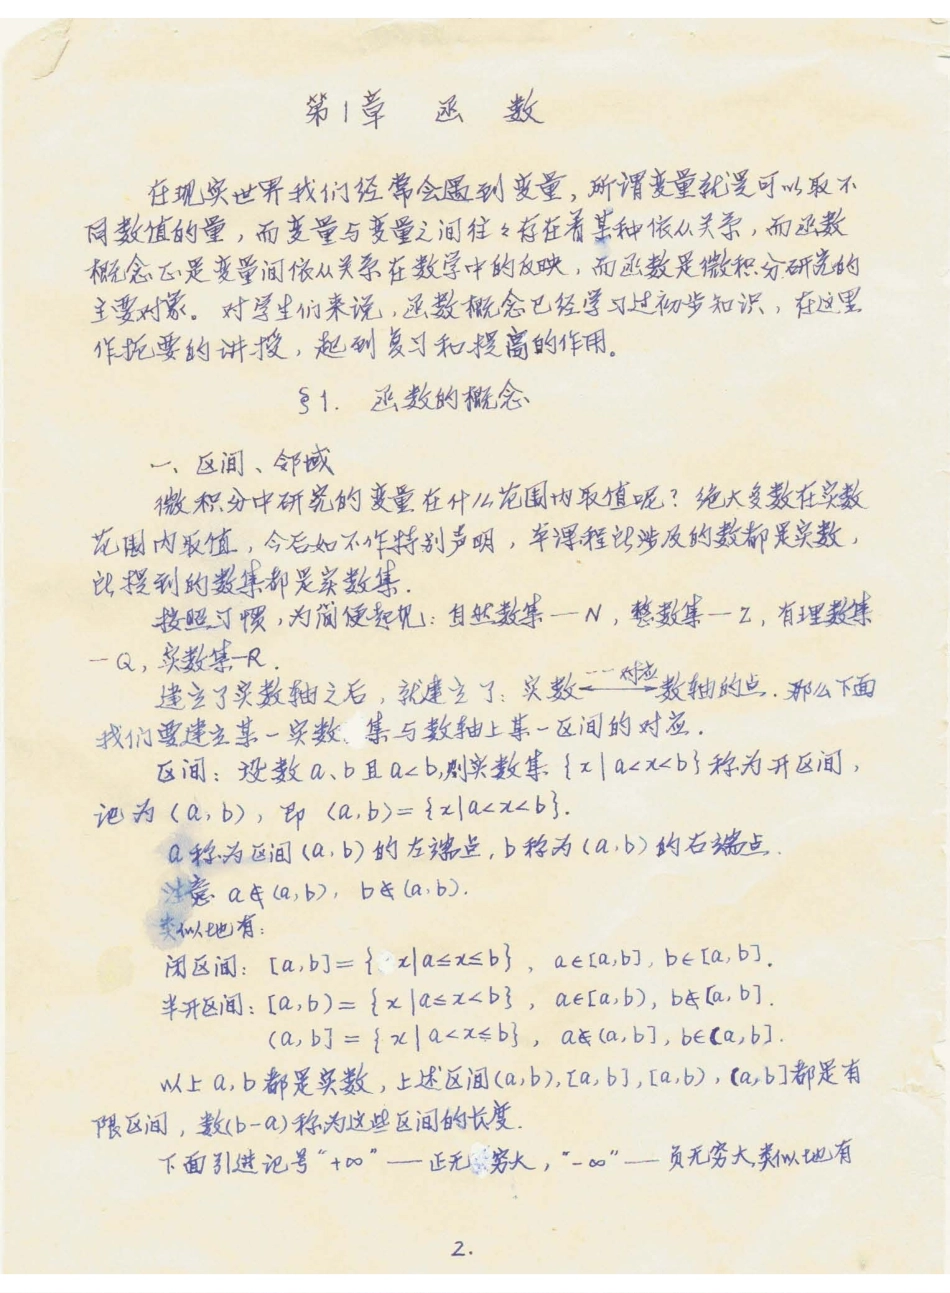 第1章 函 数
在现实世界我们经常会遇到变量，所谓变量就是可以取不
同数值的量，而变量与变量之间往々存在着某种依从关系，而函数
概念正是变量间依从关系在数学中的反映，而函数是微积分研究的
主要对象。对学生们来说，函数概念已经学习过初步知识，在这里
作扼要的讲授，起到复习和提高的作用。
§1. 函数的概念
一、区间、邻域
微积分中研究的变量在什么范围内取值呢？绝大多数在实数
范围内取值，今后如不作特别声明，本课程所涉及的数都是实数，
所提到的数集都是实数集.
按照习惯，为简便起见：自然数集—N，整数集—Z，有理数集
—Q，实数集—R.
建立了实数轴之后，就建立了：实数⟷(一一对应)数轴的点.那么下面
我们要建立某一实数集与数轴上某一区间的对应.
区间：设数a、b且a<b,则实数集{x|a<x<b}称为开区间，
记为(a,b)，即 (a,b)={x|a<x<b}.
a称为区间(a,b)的左端点,b称为(a,b)的右端点.
注意 a∉(a,b), b∉(a,b).
类似地有：
闭区间：[a,b]={x|a≤x≤b}, a∈[a,b], b∈[a,b].
半开区间：[a,b)={x|a≤x<b}, a∈[a,b), b∉[a,b].
(a,b]={x|a<x≤b}, a∉(a,b], b∈(a,b].
以上a,b都是实数，上述区间(a,b),[a,b],[a,b),(a,b]都是有
限区间，数(b-a)称为这些区间的长度.
下面引进记号“+∞”——正无穷大，“-∞”——负无穷大,类似地有
2.